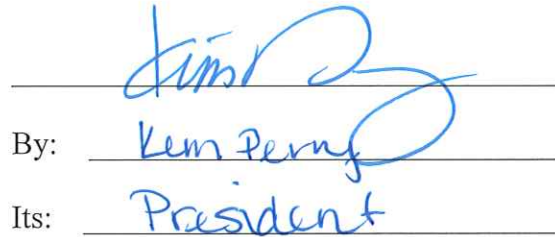 By: Kem Perry
Its: President